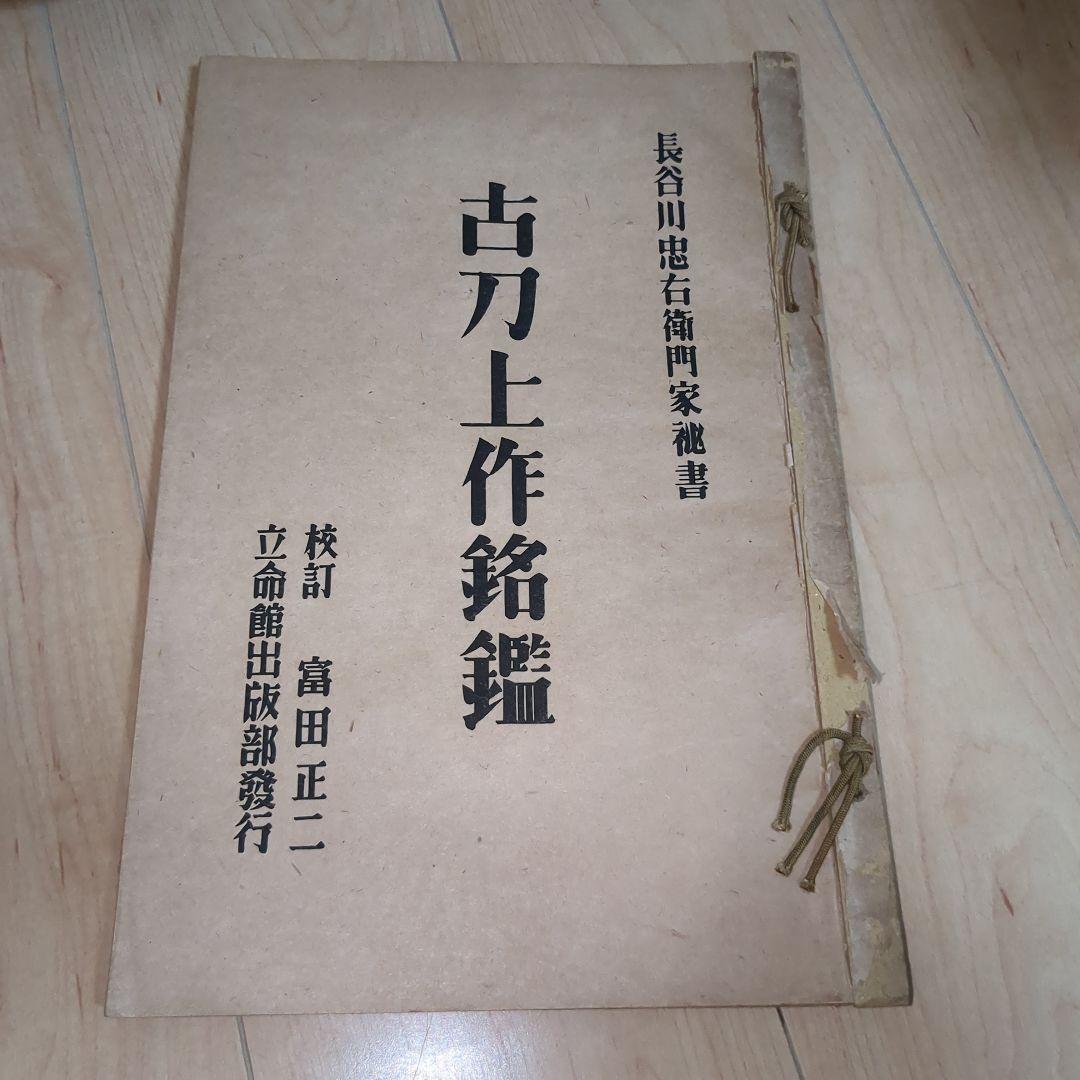 長谷川忠右衛門家祕書
古刀上作銘鑑
校訂 富田正二
立命館出版部發行